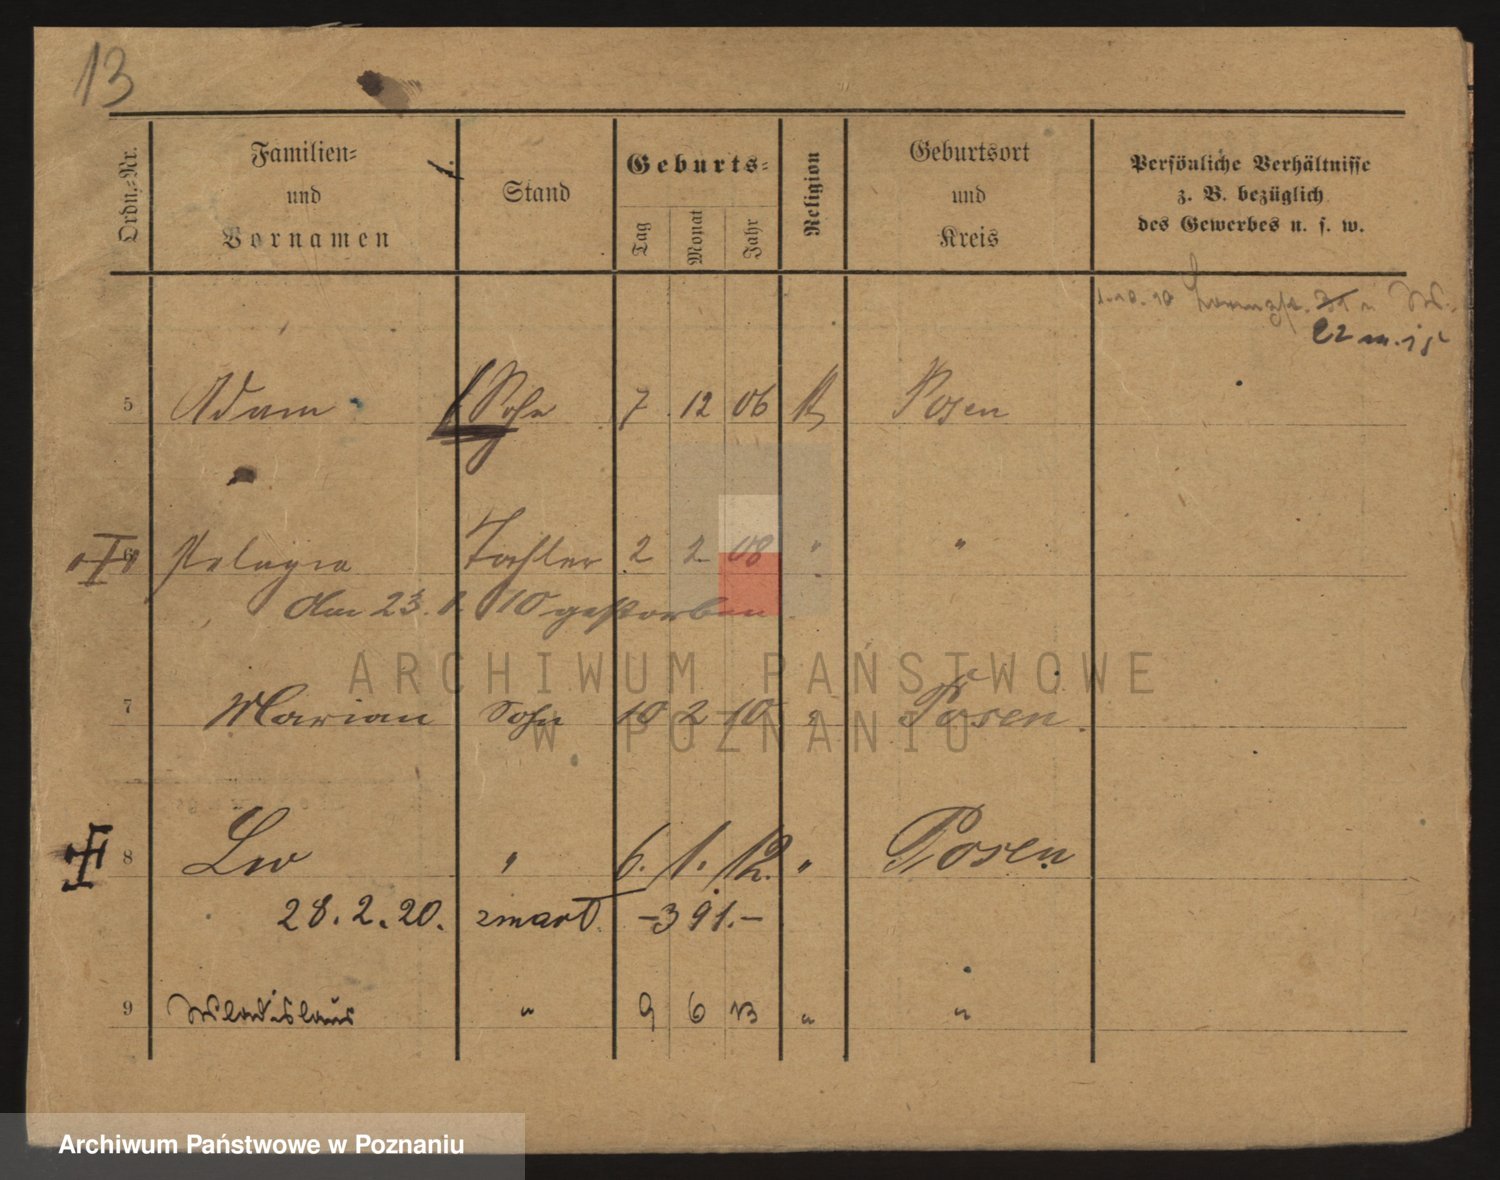 13
Ordn.-Nr.
Familien-
und
Vornamen
Stand
Geburts-
Tag
Monat
Jahr
Religion
Geburtsort
und
Kreis
Persönliche Verhältnisse
z. B. bezüglich
des Gewerbes u. s. w.
1.10.10
22 m. 15
5 Adam Sohn 7 12 06 K Posen
6 Pelagia Tochter 2 2 08 " "
Am 23. 1. 10 gestorben
ARCHIWUM PAŃSTWOWE
7 Marian Sohn 10 2 10 " Posen
W POZNANIU
8 Leo " 6. 1. 12. " Posen
28. 2. 20. zmarł. -391.-
9 Wladislaus " 9 6 13 " "
Archiwum Państwowe w Poznaniu